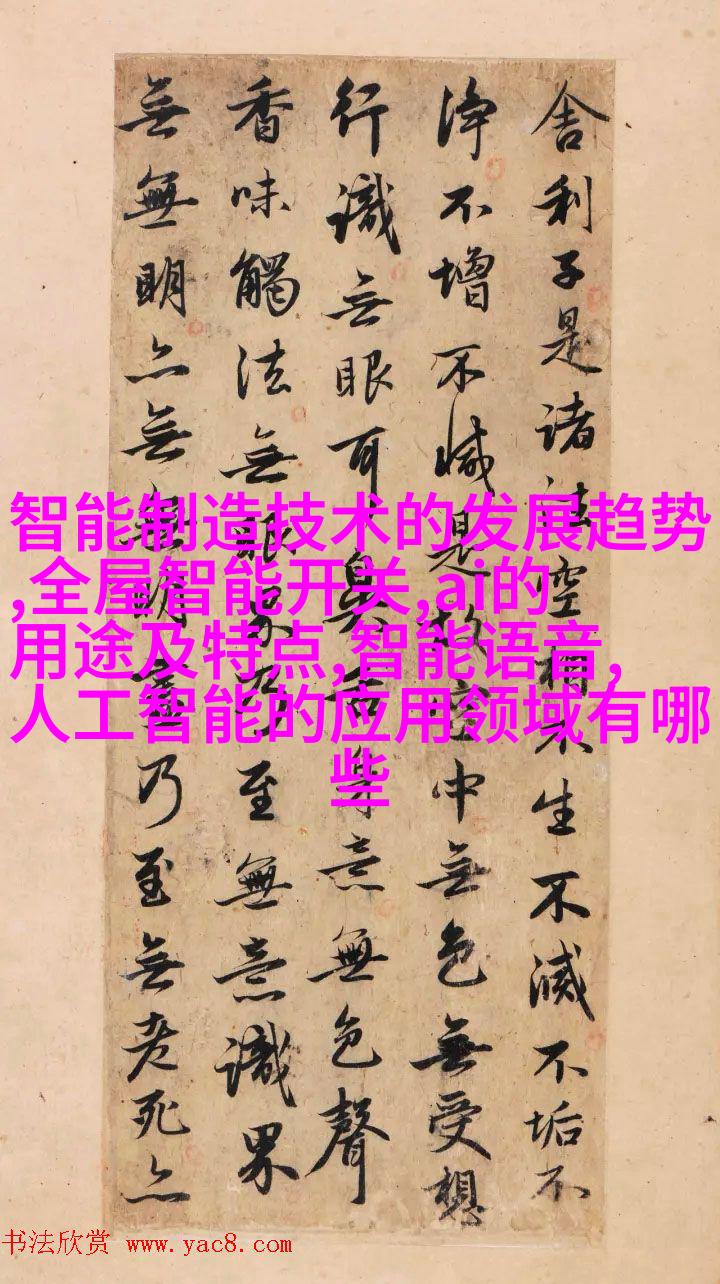 舍利子是諸法空相不生不滅不垢不
淨不增不減是故空中無色無受想
行識無眼耳鼻舌身意無色聲
香味觸法無眼界乃至無意識界
無無明亦無無明盡乃至無老死亦
智能制造技术的发展趋势
,全屋智能开关,ai的
用途及特点,智能语音,
人工智能的应用领域有哪
些
书法欣赏 www.yac8.com